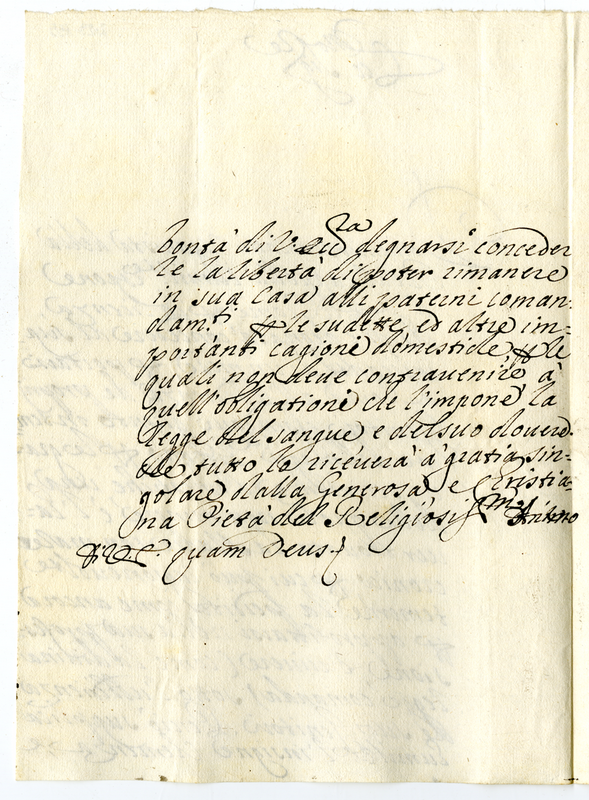 bontà di V. Ecc.za degnarsi conceder
le la libertà di poter rimanere
in sua Casa alli paterni coman=
dam.ti p le sudette, ed altre im=
portanti cagioni domestiche, p le
quali non deve contravenire à
quell'obligatione che l'impone la
legge del sangue e del suo dovere.
Che tutto lo riceverà à gratia sin=
golare dalla Generosa e Christia=
na Pietà del Religiosiss.mo Animo
di V. E. quam Deus